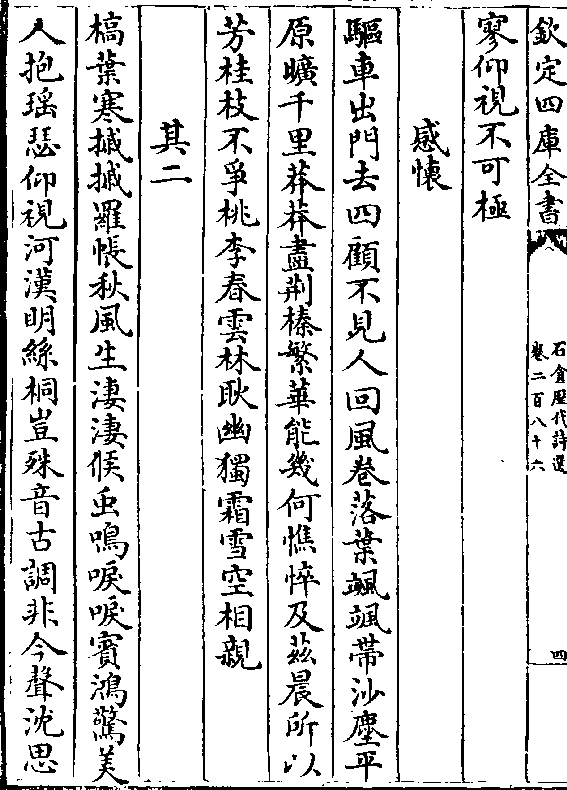 欽定四庫全書
石倉歷代詩選
卷二百八十六
四
寥仰視不可極
感懷
驅車出門去四顧不見人回風卷落葉颯颯帶沙塵平
原曠千里莽莽盡荆榛繁華能幾何憔悴及茲晨所以
芳桂枝不爭桃李春雲林耿幽獨霜雪空相親
其二
槁葉寒摵摵羅帳秋風生淒淒候䖝鳴唳唳賓鴻驚美
人抱瑶瑟仰視河漢明絲桐豈殊音古調非今聲沈思